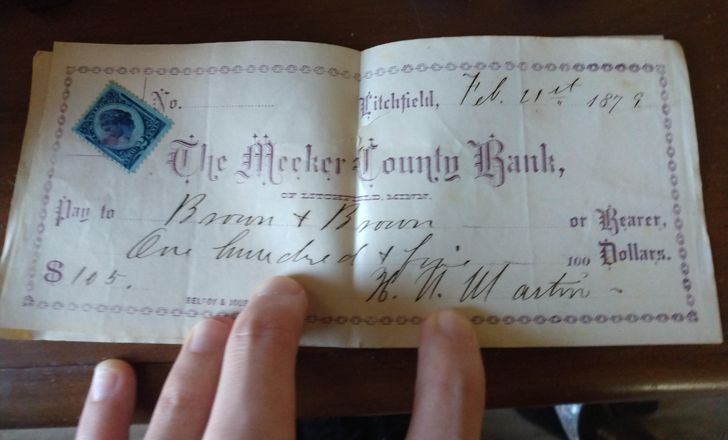 No.
Litchfield, Feb. 21st 1878
The Meeker County Bank,
OF LITCHFIELD, MINN.
Pay to Brown & Brown or Bearer,
One hundred & five 100 Dollars.
$ 105. Martin